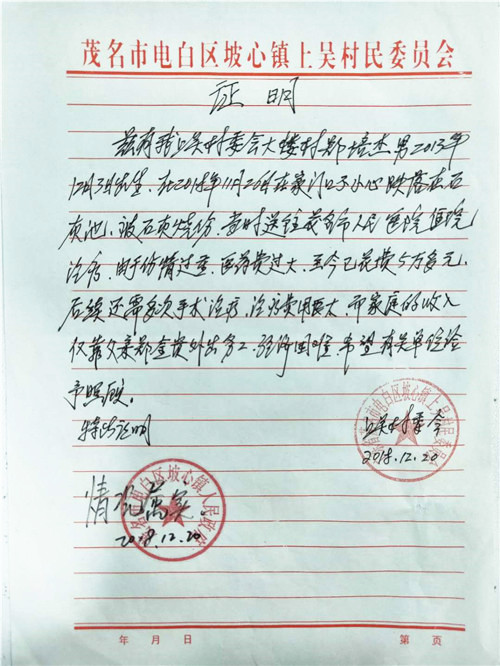 茂名市电白区坡心镇上吴村民委员会
证明
兹有我上吴村委会大楼村郑培杰男2013年
12月3日出生,在2018年11月2日在家门口不小心跌落在石
灰池,被石灰烧伤,当时送往茂名市人民医院医院
治疗,由于伤情过重,医药费过大,至今已花费5万多元,
后续还需多次手术治疗,治疗费用更大,而家庭的收入
仅靠父亲郑金贵外出务工,经济困难,希望有关单位给
予照顾。
特此证明
上吴村委会
2018.12.20
茂名市电白区坡心镇上吴村民委员会
情况属实。
2018.12.20
茂名市电白区坡心镇人民政府
年 月 日
第 页